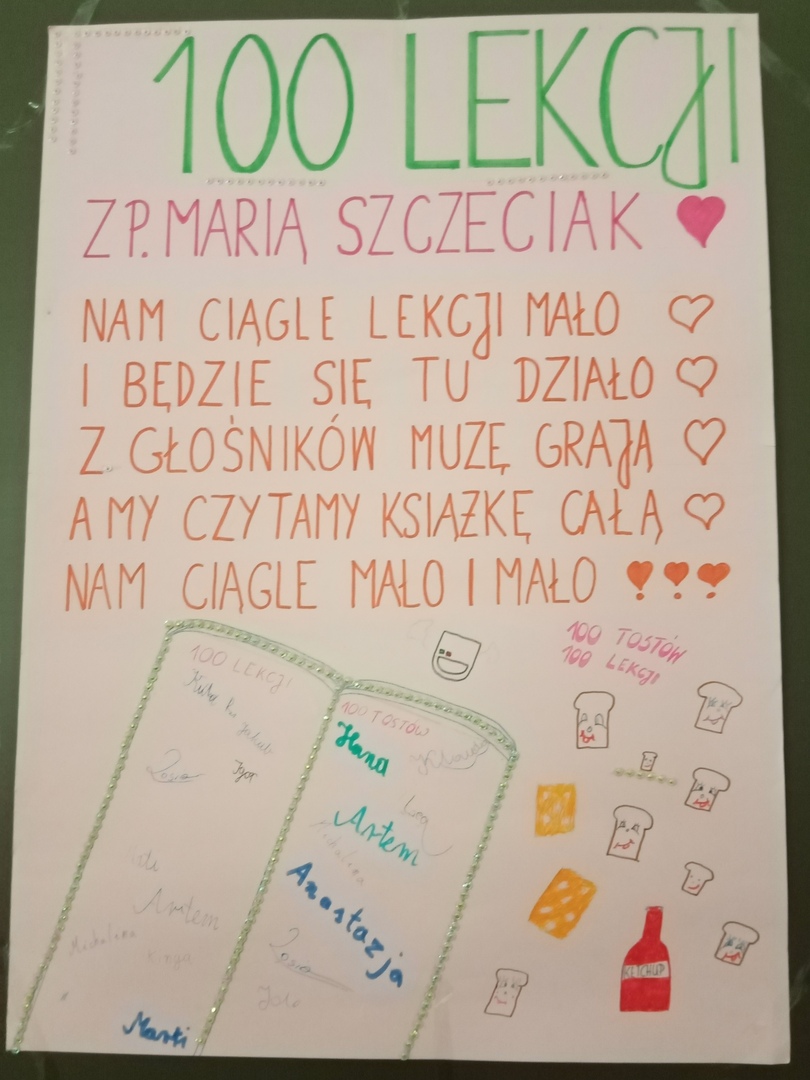 100 LEKCJI
Z P. MARIĄ SZCZECIAK
NAM CIĄGLE LEKCJI MAŁO
I BĘDZIE SIĘ TU DZIAŁO
Z GŁOŚNIKÓW MUZĘ GRAJĄ
A MY CZYTAMY KSIĄŻKĘ CAŁĄ
NAM CIĄGLE MAŁO I MAŁO !!!
100 TOSTÓW
100 LEKCJI
100 LEKCJI
Igor
Artem
Machalina
Kinga
100 TOSTÓW
Hana
Artem
Anastazja
KETCHUP